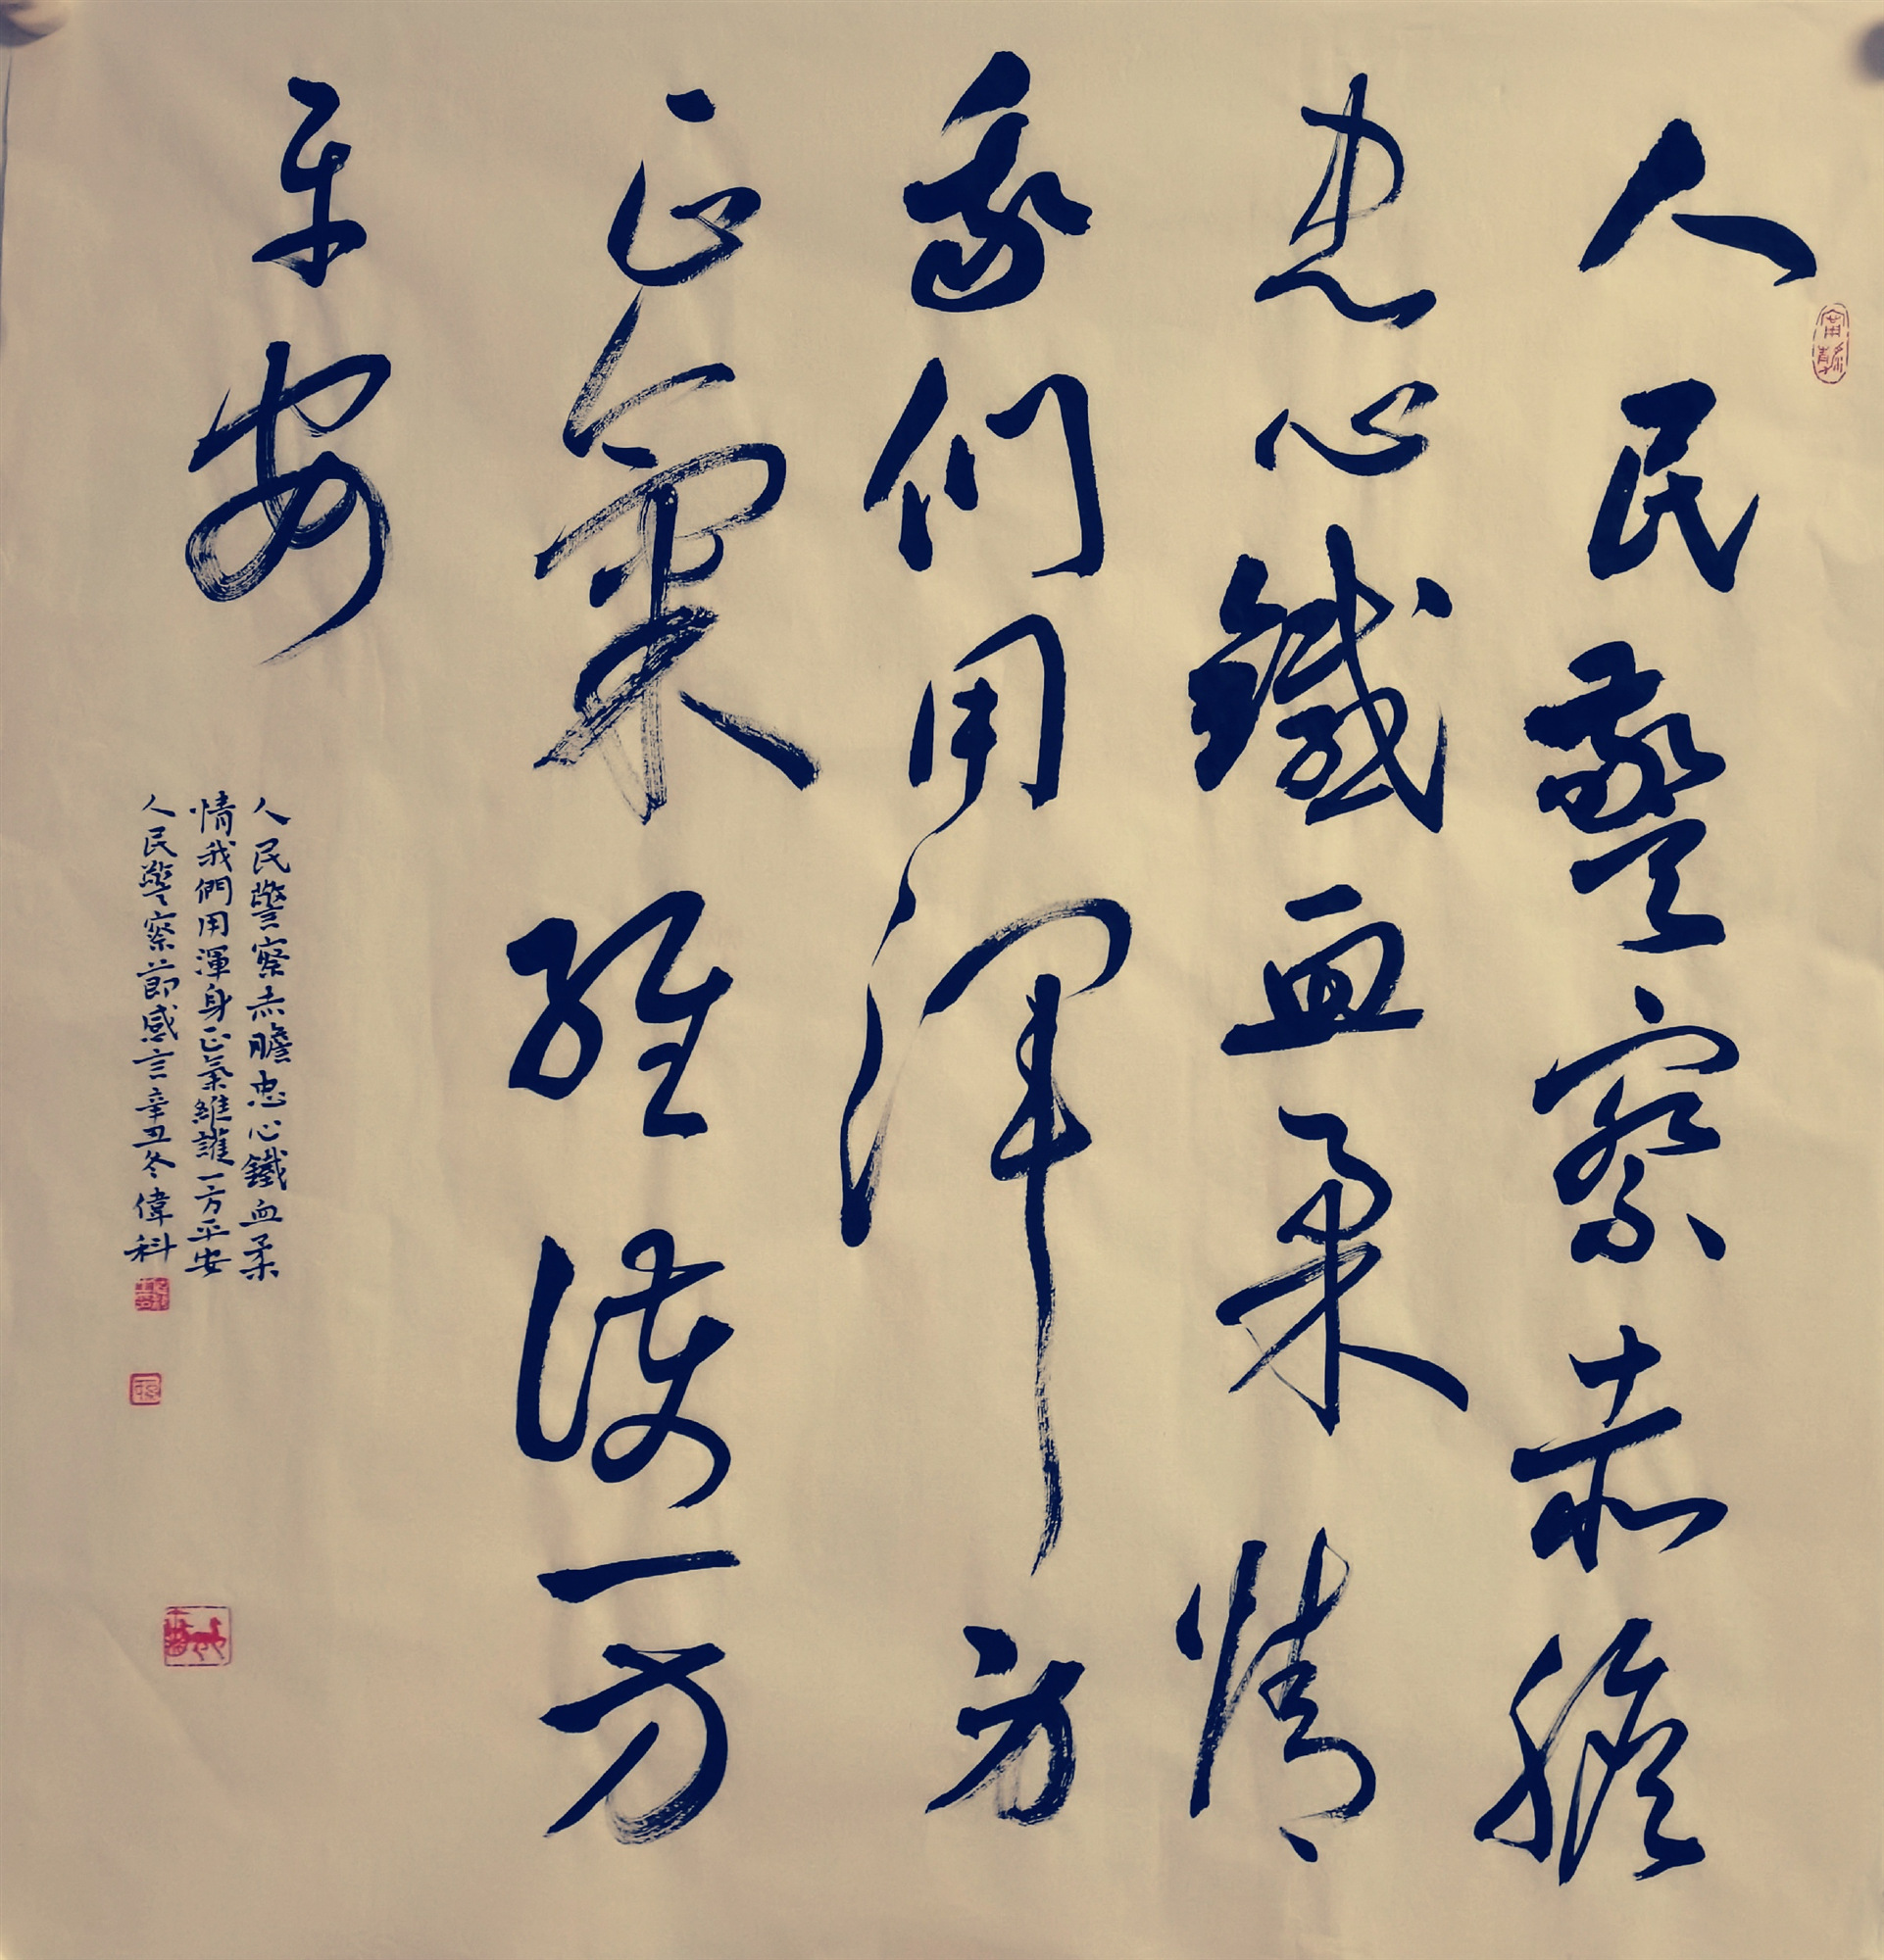 人民警察赤膽
忠心鐵血柔情
我們用渾身
正氣維護一方
平安
人民警察赤膽忠心鐵血柔
情我們用渾身正氣維護一方平安
人民警察節感言辛丑冬偉科